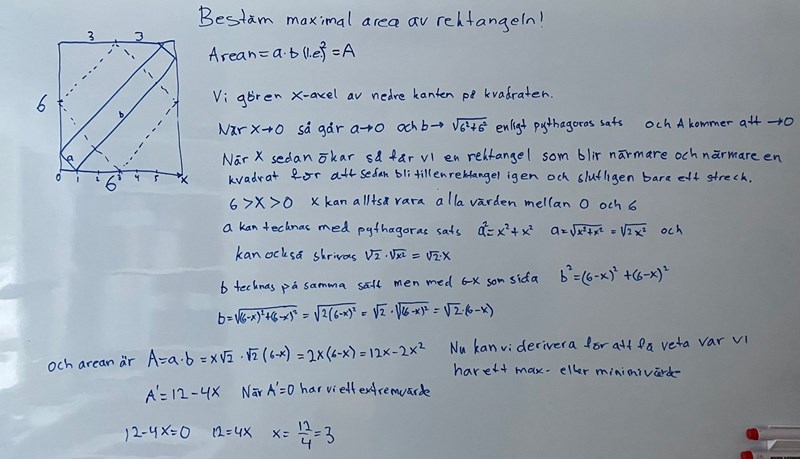 Bestäm maximal area av rektangeln!
3 3
Arean = a·b (l.e)² = A
6
b
a
0 1 2 3 4 5 x
6
Vi gör en x-axel av nedre kanten på kvadraten.
När x→0 så går a→0 och b→ √6²+6² enligt pythagoras sats och A kommer att →0
När x sedan ökar så får vi en rektangel som blir närmare och närmare en
kvadrat för att sedan bli till en rektangel igen och slutligen bara ett streck.
6 > x > 0 x kan alltså vara alla värden mellan 0 och 6
a kan tecknas med pythagoras sats a²=x²+x² a=√x²+x² = √2x² och
kan också skrivas √2·√x² = √2·x
b tecknas på samma sätt men med 6-x som sida b²=(6-x)²+(6-x)²
b=√(6-x)²+(6-x)² = √2(6-x)² = √2·√(6-x)² = √2·(6-x)
och arean är A=a·b = x√2·√2(6-x) = 2x(6-x) = 12x-2x² Nu kan vi derivera för att få veta var vi
har ett max- eller minimivärde
A'=12-4x När A'=0 har vi ett extremvärde
12-4x=0 12=4x x= 12/4 = 3